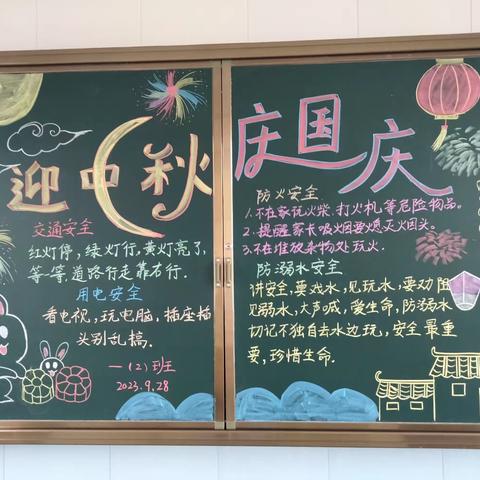 迎中秋
交通安全
红灯停,绿灯行,黄灯亮了,
等一等,道路行走靠右行.
用电安全
看电视,玩电脑,插座插
头别乱搞.
一(2)班
2023.9.28
庆国庆
防火安全
1.不在家玩火柴、打火机等危险物品。
2.提醒家长吸烟要熄灭烟头。
3.不在堆放杂物处玩火.
防溺水安全
讲安全,要戏水,见玩水,要劝阻
见溺水,大声喊,爱生命,防溺水
切记不独自去水边玩,安全最重
要,珍惜生命.